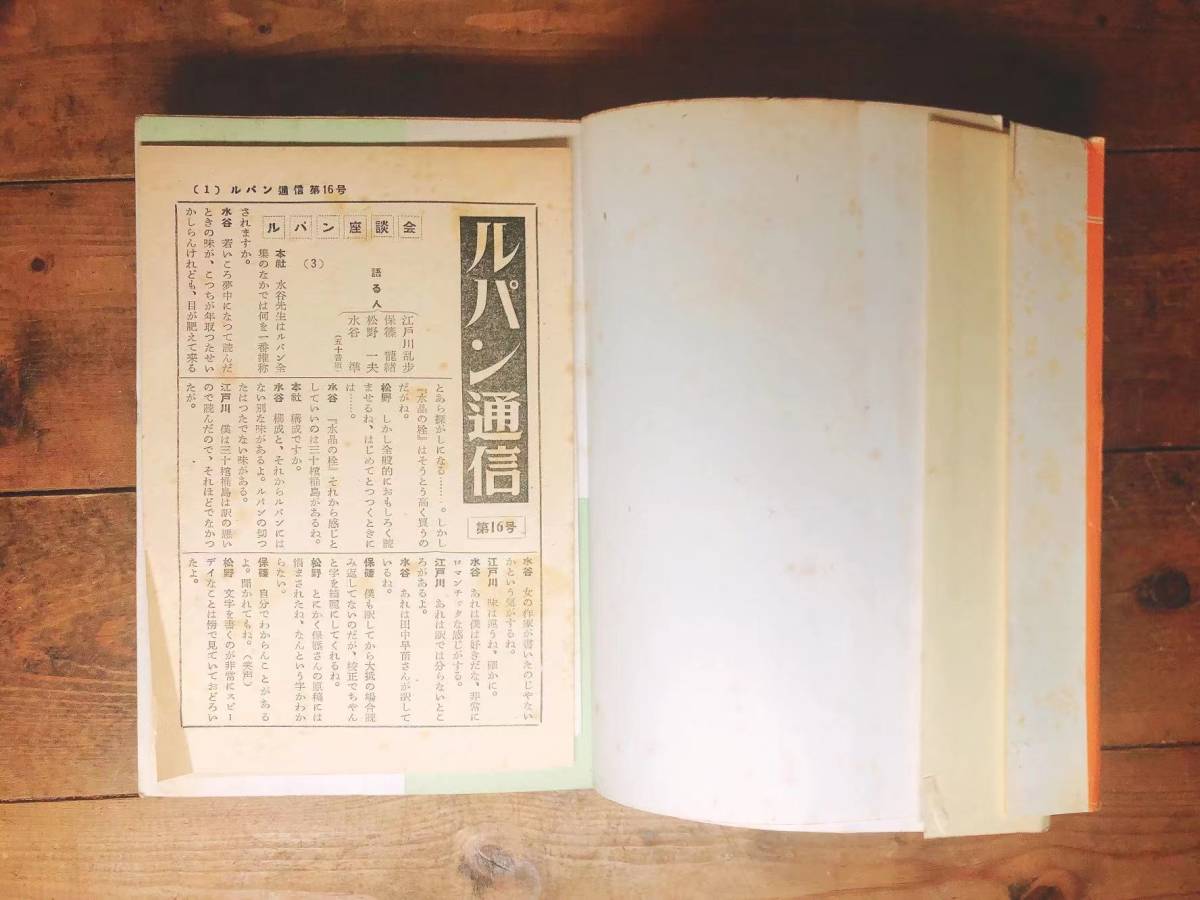 (1) ルパン通信第16号
ルパン通信
第16号
ルパン座談会
(3)
語る人
江戸川乱歩
保篠龍緒
松野一夫
水谷準
(五十音順)
本社　水谷先生はルパン全
集のなかでは何を一番推称
されますか。
水谷　若いころ夢中になつて読んだ
ときの味が、こつちが年取つたせい
かしらんけれども、目が肥えて来る
とあら探がしになる……。しかし
『水晶の栓』はそうとう高く買うの
だがね。
松野　しかし全般的におもしろく読
ませるね、はじめてとつつくときに
は……。
水谷　『水晶の栓』それから感じと
していいのは三十棺桶島があるね。
本社　構成ですか。
水谷　構成と、それからルパンには
ない別な味があるよ。ルパンの切つ
たはつたでない味がある。
江戸川　僕は三十棺桶島は訳の悪い
ので読んだので、それほどでなかつ
たが。
水谷　女の作家が書いたのじやない
かという気がするね。
江戸川　味は違うね、確かに。
水谷　あれは僕は好きだな、非常に
ロマンチックな感じがする。
江戸川　あれは訳では分らないとこ
ろがあるよ。
水谷　あれは田中早苗さんが訳して
いるね。
保篠　僕も訳してから大抵の場合読
み返してないのだが、校正でちやん
と字を綺麗にしてくれるね。
松野　とにかく保篠さんの原稿には
悩まされたね、なんという字かわか
らない。
保篠　自分でわからんことがある
よ。聞かれてもね。(笑声)
松野　文字を書くのが非常にスピー
デイなことは傍で見ていておどろい
たよ。